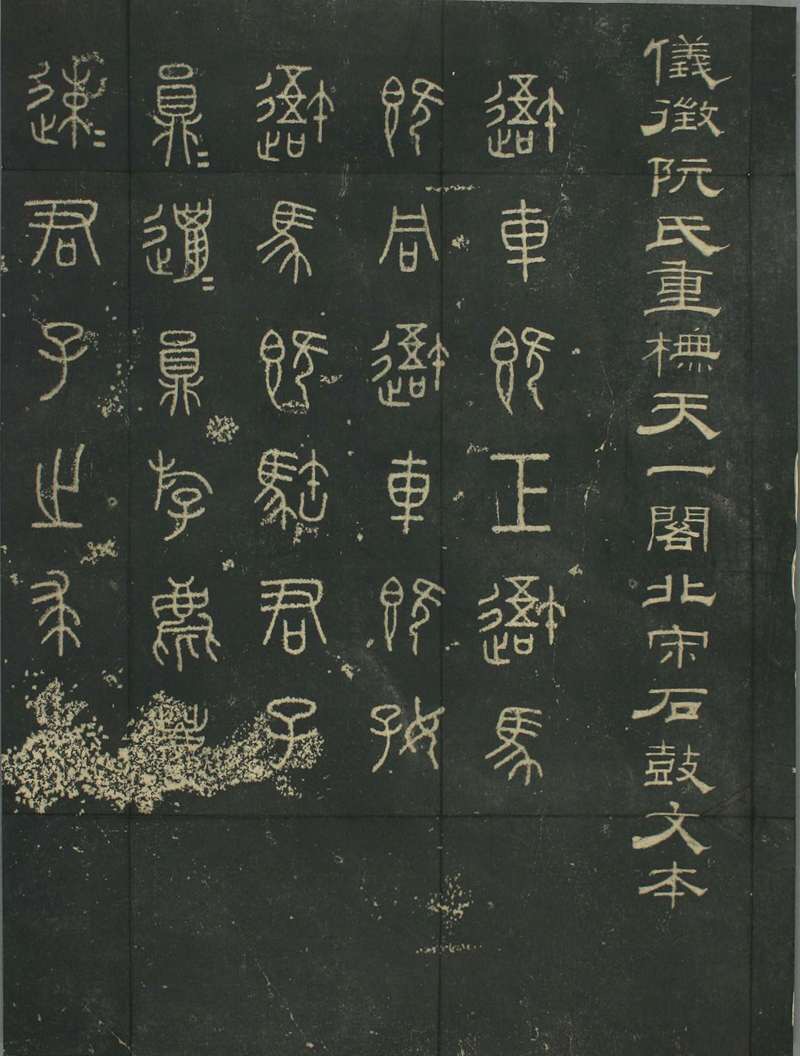 儀徵阮氏重橅天一閣北宋石鼓文本
䢒車既工䢒馬
既同䢒車既好
䢒馬既駐君子
員=邋=員斿麀鹿
速=君子之求